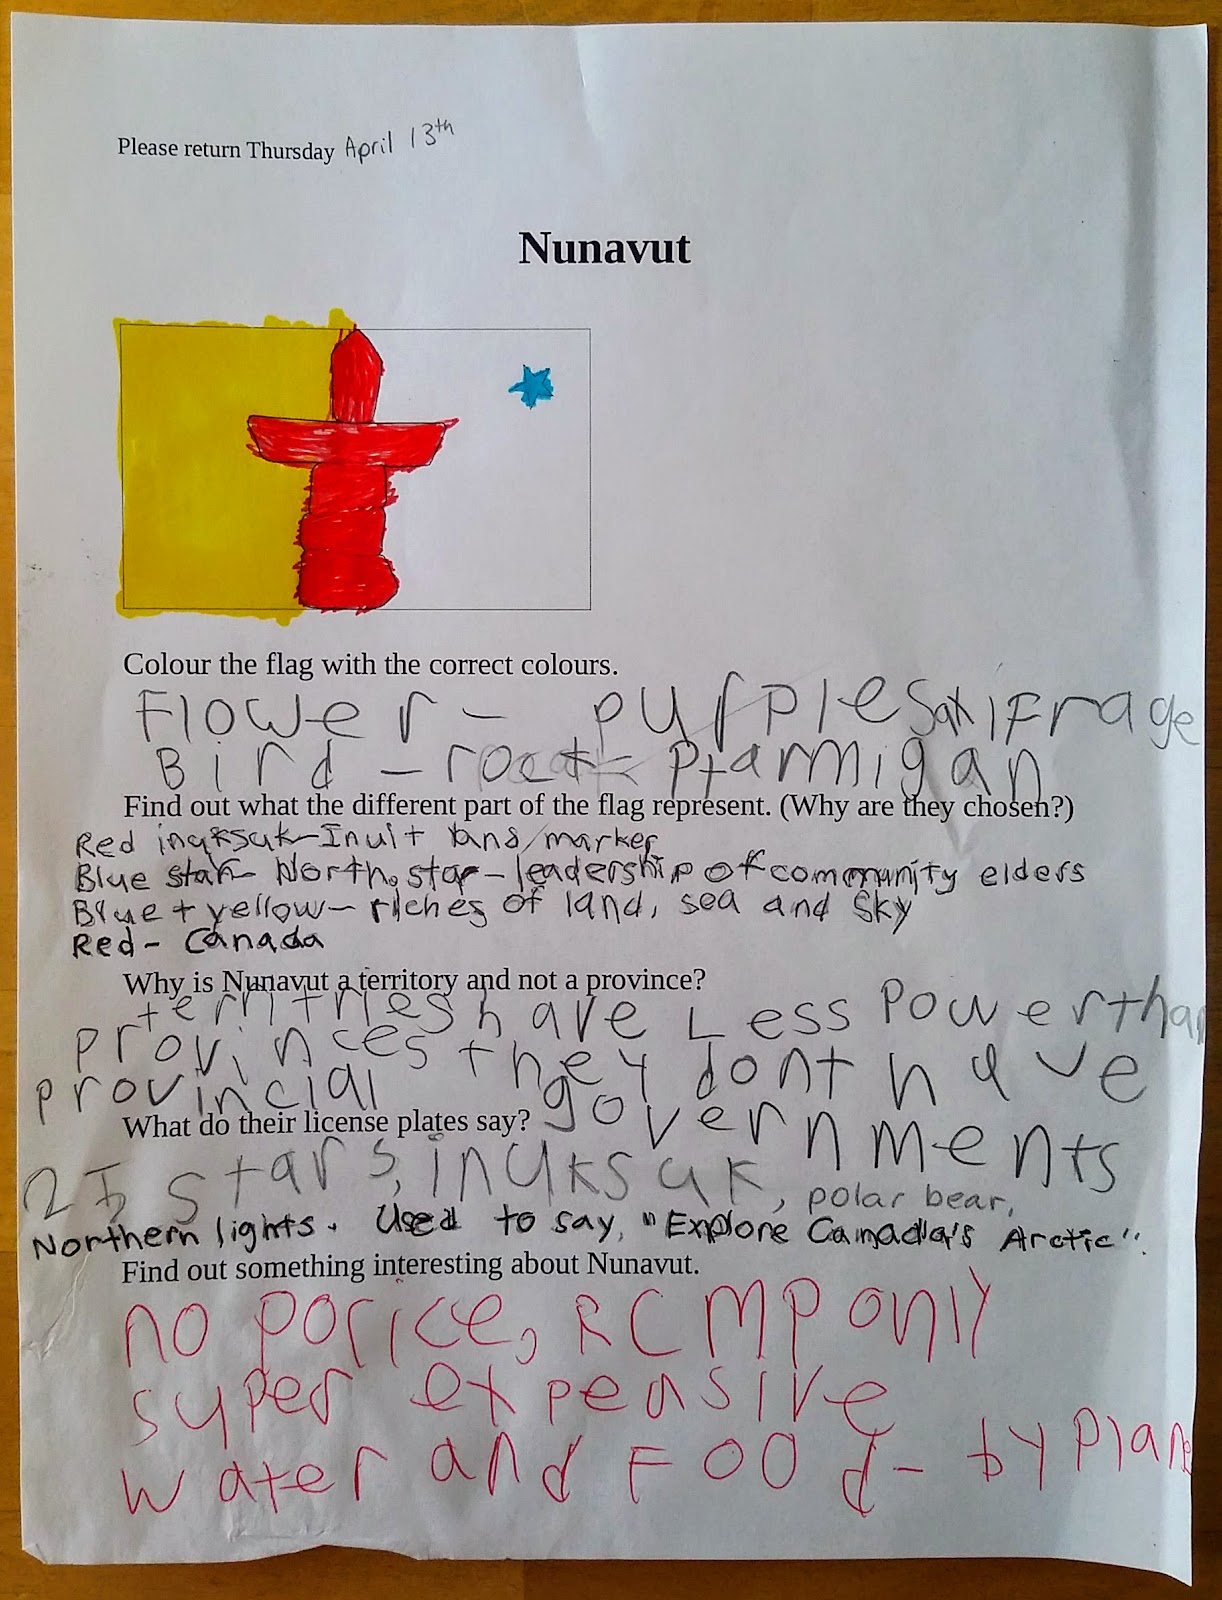 Please return Thursday April 13th
Nunavut
Colour the flag with the correct colours.
Flower - purple Saxifrage
Bird - rock Ptarmigan
Find out what the different part of the flag represent. (Why are they chosen?)
Red inuksuk-Inuit land/marker
Blue star- North star - leadership of community elders
Blue + yellow - riches of land, sea and sky
Red - Canada
Why is Nunavut a territory and not a province?
territries have Less Power than
provinces they dont have
provincial governments
What do their license plates say?
25 stars, inuksuk, polar bear,
Northern lights. Used to say, "Explore Canada's Arctic".
Find out something interesting about Nunavut.
no porice, RCMP only
super expensive
water and Food - by Plane